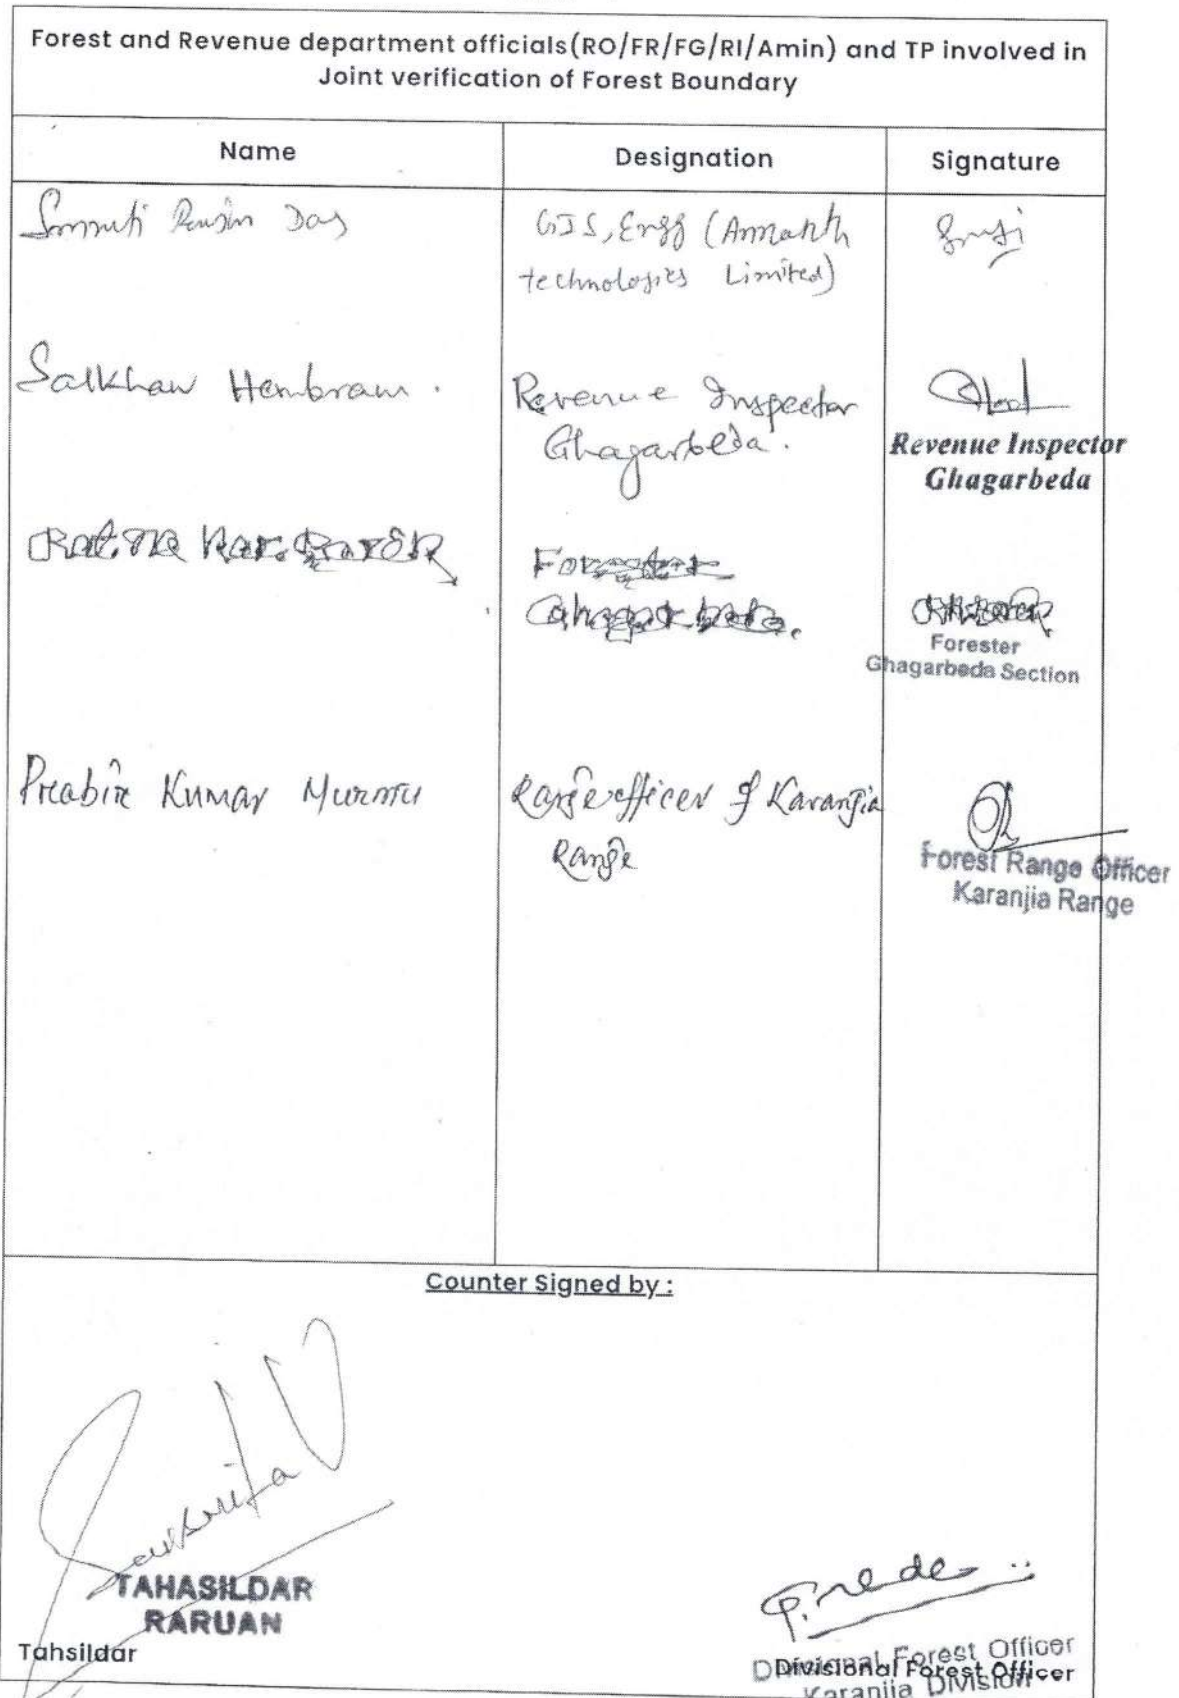 Forest and Revenue department officials(RO/FR/FG/RI/Amin) and TP involved in
Joint verification of Forest Boundary
Name Designation Signature
Smruti Das GIS, Engg (Annanth
technologies Limited)
Salkhan Hembram . Revenue Inspector
Ghagarbeda .
Revenue Inspector
Ghagarbeda
Forester
Forester
Ghagarbeda Section
Preabir Kumar Murmu Range officer of Karanjia
Range
Forest Range Officer
Karanjia Range
Counter Signed by :
TAHASILDAR
RARUAN
Tahsildar
Divisional Forest Officer
Divisional Forest Officer
Karanjia Division